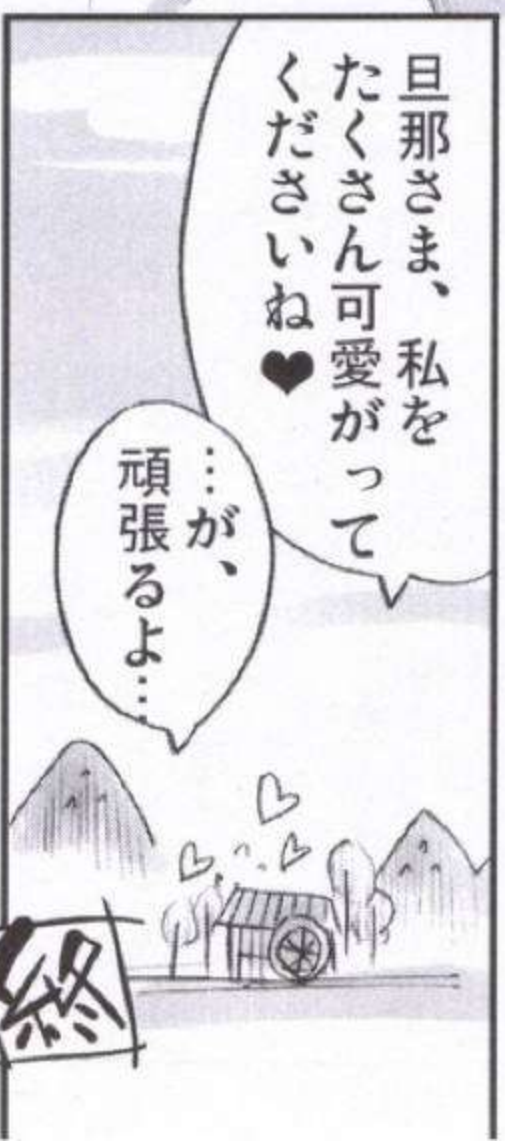 旦那さま、私を
たくさん可愛がって
くださいね♥
…が、
頑張るよ…
終